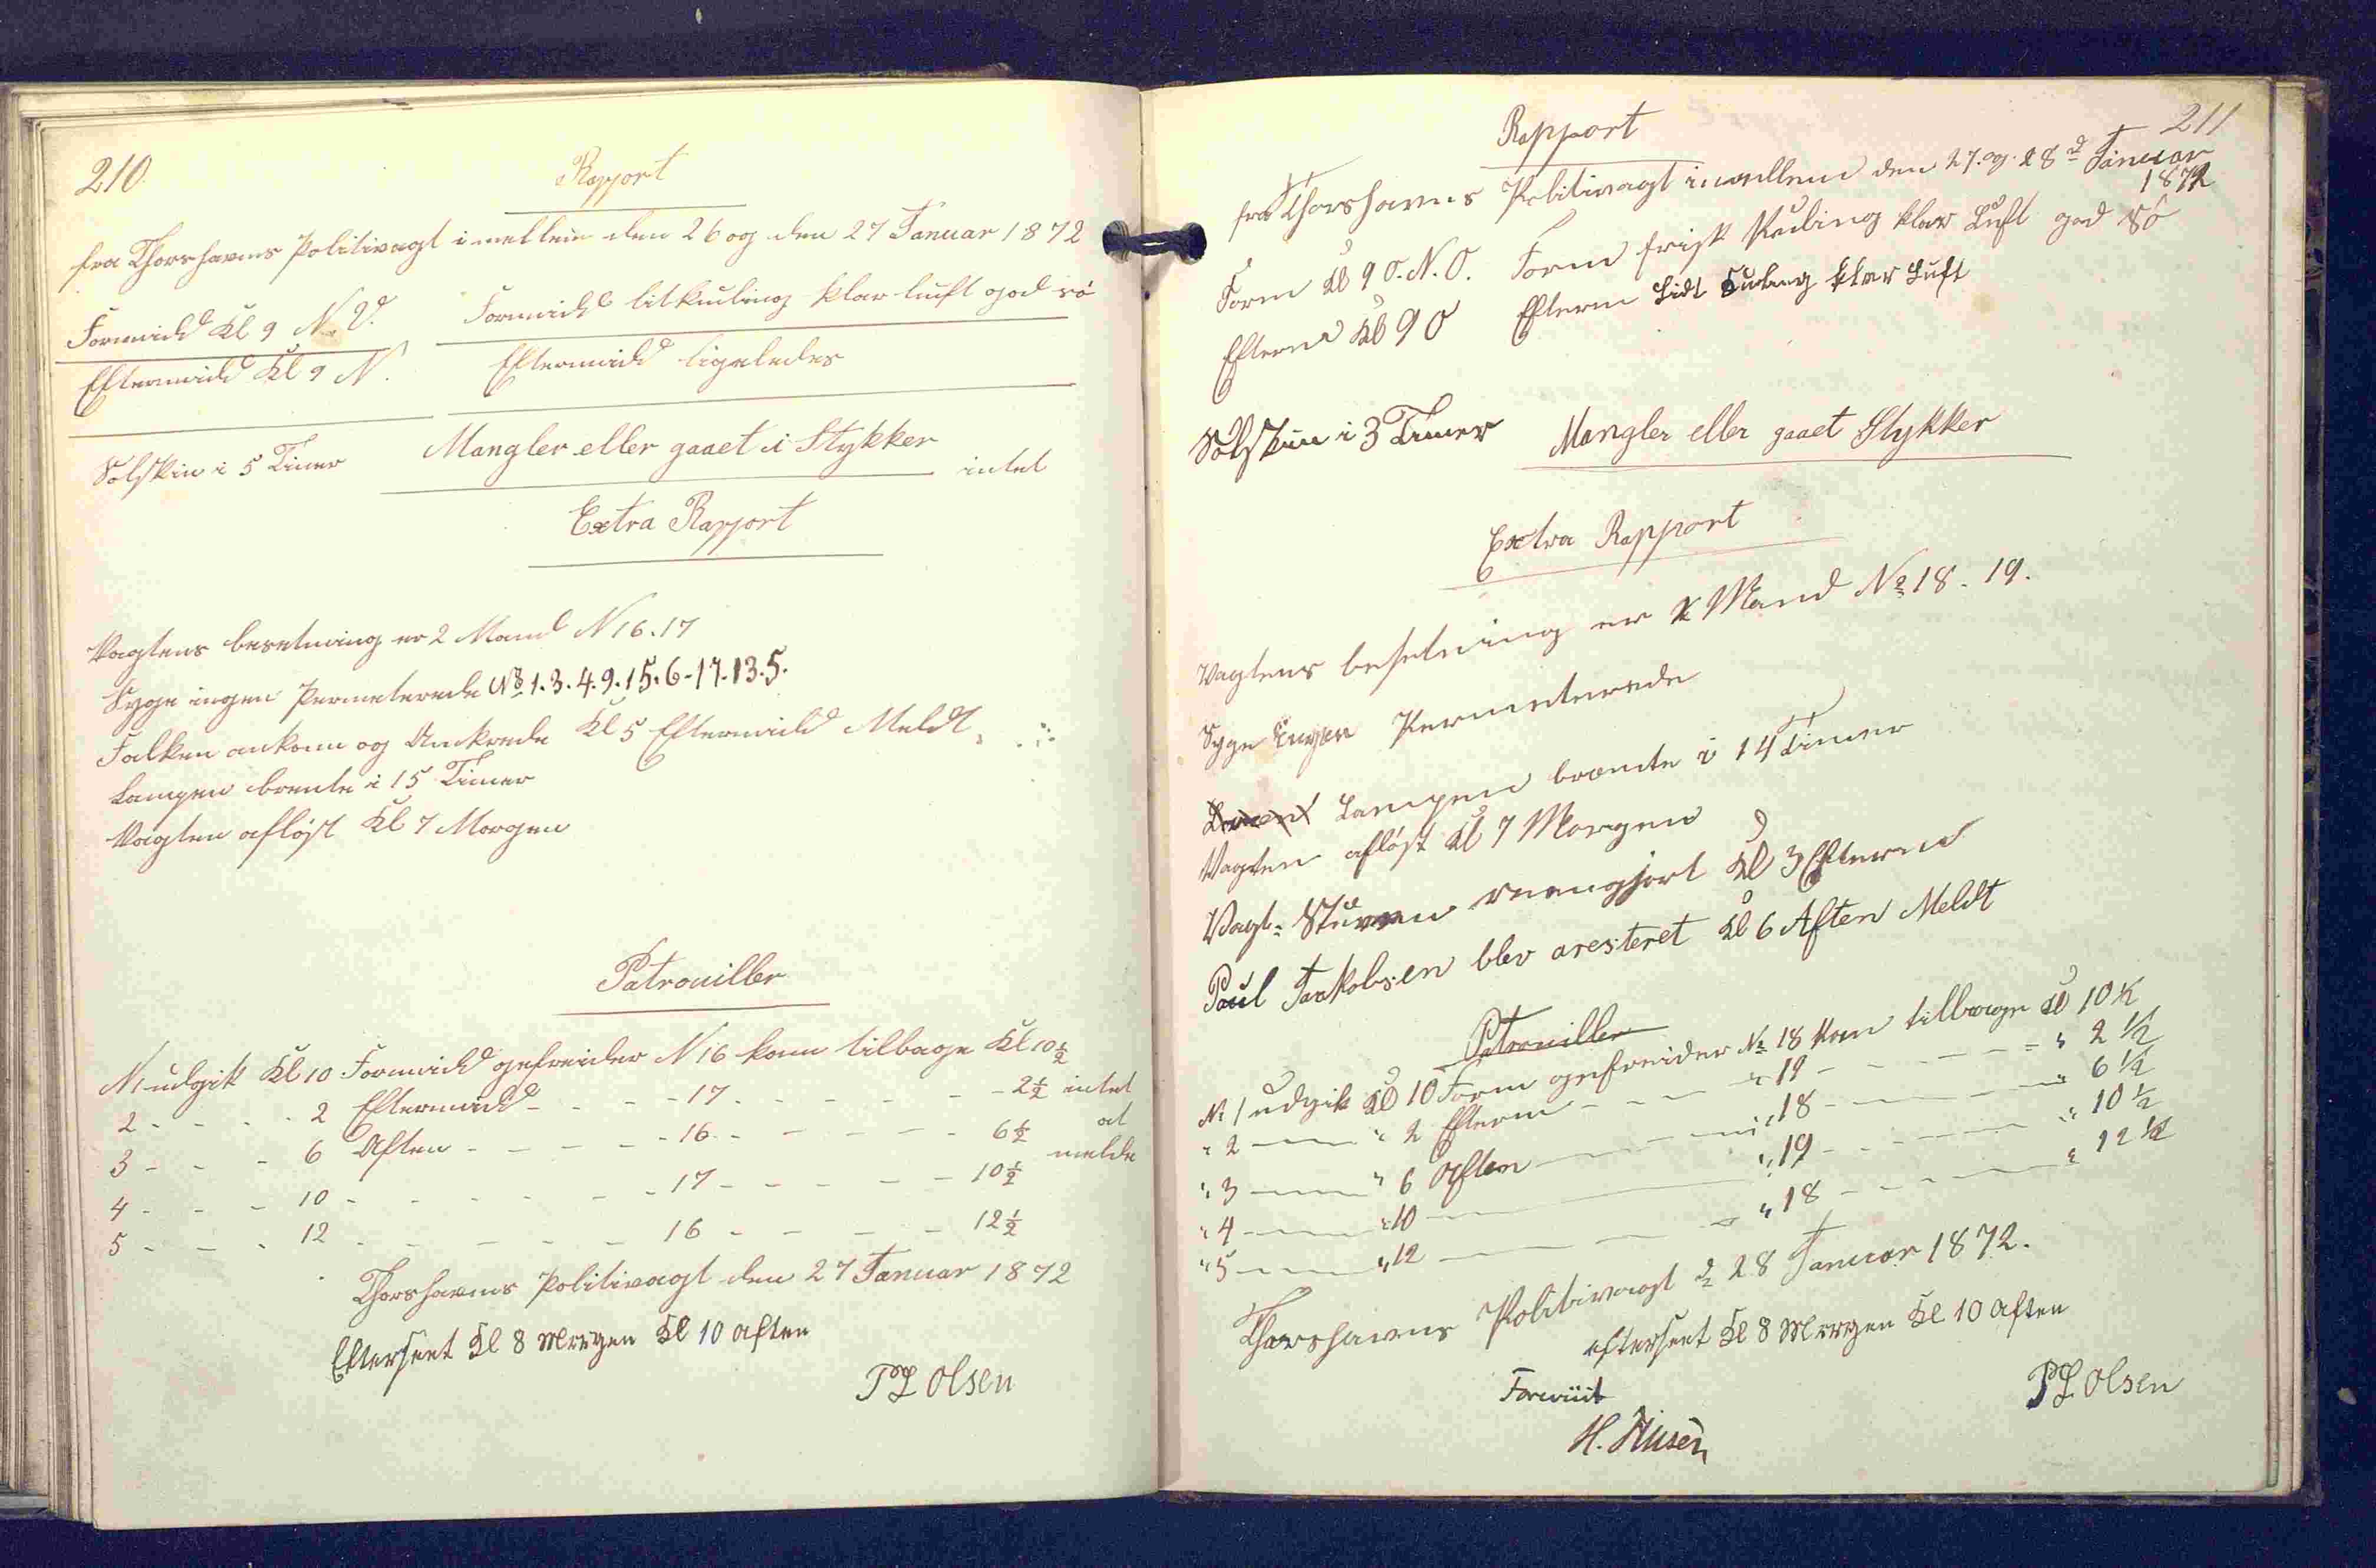 210.
Rapport
fra Thorshavns Politivagt imellem den 26 og den 27 Januar 1872
Formidd Kl 9 N.V. Formidd litkuling klar luft god sö
Eftermidd Kl 9 N. Eftermidd ligeledes
Solskin i 5 Timer Mangler eller gaaet i Stykker intet
Extra Rapport
Vagtens besetning er 2 Mand N 16.17
Syge ingen Permeterede No 1.3.4.9.15.6-17.13.5.
Falken ankom og Ankrede Kl 5 Eftermidd Meldt.
Lampen brente i 15 Timer
Vagten afløst Kl 7 Morgen
Patrouiller
N1 udgik Kl 10 Formidd gefreider N 16 kom tilbage Kl 10½
2 - - - - 2 Eftermidd - - - - 17 - - - - - 2½ intet
3 - - - 6 Aften - - - - - 16 - - - - - 6½ at
4 - - - 10 - - - - - - 17 - - - - - 10½ melde
5 - - - 12 - - - - - - 16 - - - - 12½
Thorshavns Politivagt den 27 Januar 1872
Efterseet Kl 8 Morgen Kl 10 aften
PL Olsen
211
Rapport
fra Thorshavns Politivagt imellem den 27. og. 28d Januar
1872
Form Kl 9 O.N.O. Form frisk Kuling klar Luft god Sö
Efterm Kl 9 O Efterm Lidt Kuling klar Luft
Solskin i 3 Timer Mangler eller gaaet Stykker
Extra Rapport
Vagtens besetning er 2 Mand No 18-19.
Syge Ingen Permeterede
Lampen brænte i 14 Timer
Vagten afløst Kl 7 Morgen
Vagt-Stuen reengjort Kl 3 Efterm
Paul Jaakobsen blev aresteret Kl 6 Aften Meldt
Patrouiller
No 1 udgik Kl 10 Form gefreider No 18 kom tilbage Kl 10½
" 2 — " 2 Efterm - - - " 19 - - - - - " 2½
" 3 — " 6 Aften — " 18 - — " 6½
" 4 — " 10 — " 19 - - — " 10½
" 5 — " 12 — " 18 - - — " 12½
Thorshavns Politivagt d 28 Januar 1872.
efterseet Kl 8 Morgen Kl 10 aften
PL Olsen
H.